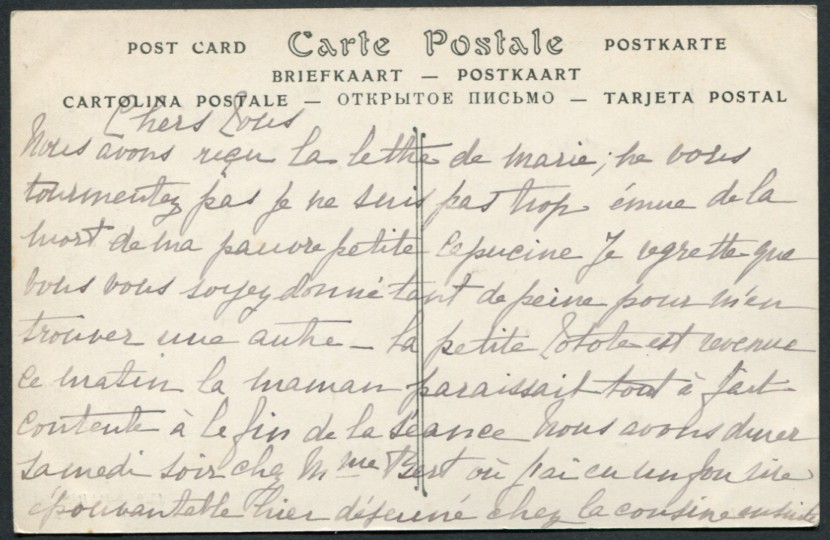 POST CARD Carte Postale POSTKARTE
BRIEFKAART — POSTKAART
CARTOLINA POSTALE — ОТКРЫТОЕ ПИСЬМО — TARJETA POSTAL
Chers Tous
Nous avons reçu la lettre de marie; ne vous
tourmentez pas je ne suis pas trop émue de la
mort de ma pauvre petite Capucine Je regrette que
vous vous soyez donné tant de peine pour m'en
trouver une autre — La petite Totote est revenue
ce matin la maman paraissait tout à fait
contente à le fin de la séance Nous avons diner
samedi soir chez Mme Bert où j'ai eu un fou rire
épouvantable Hier déjeuné chez la cousine ensuite